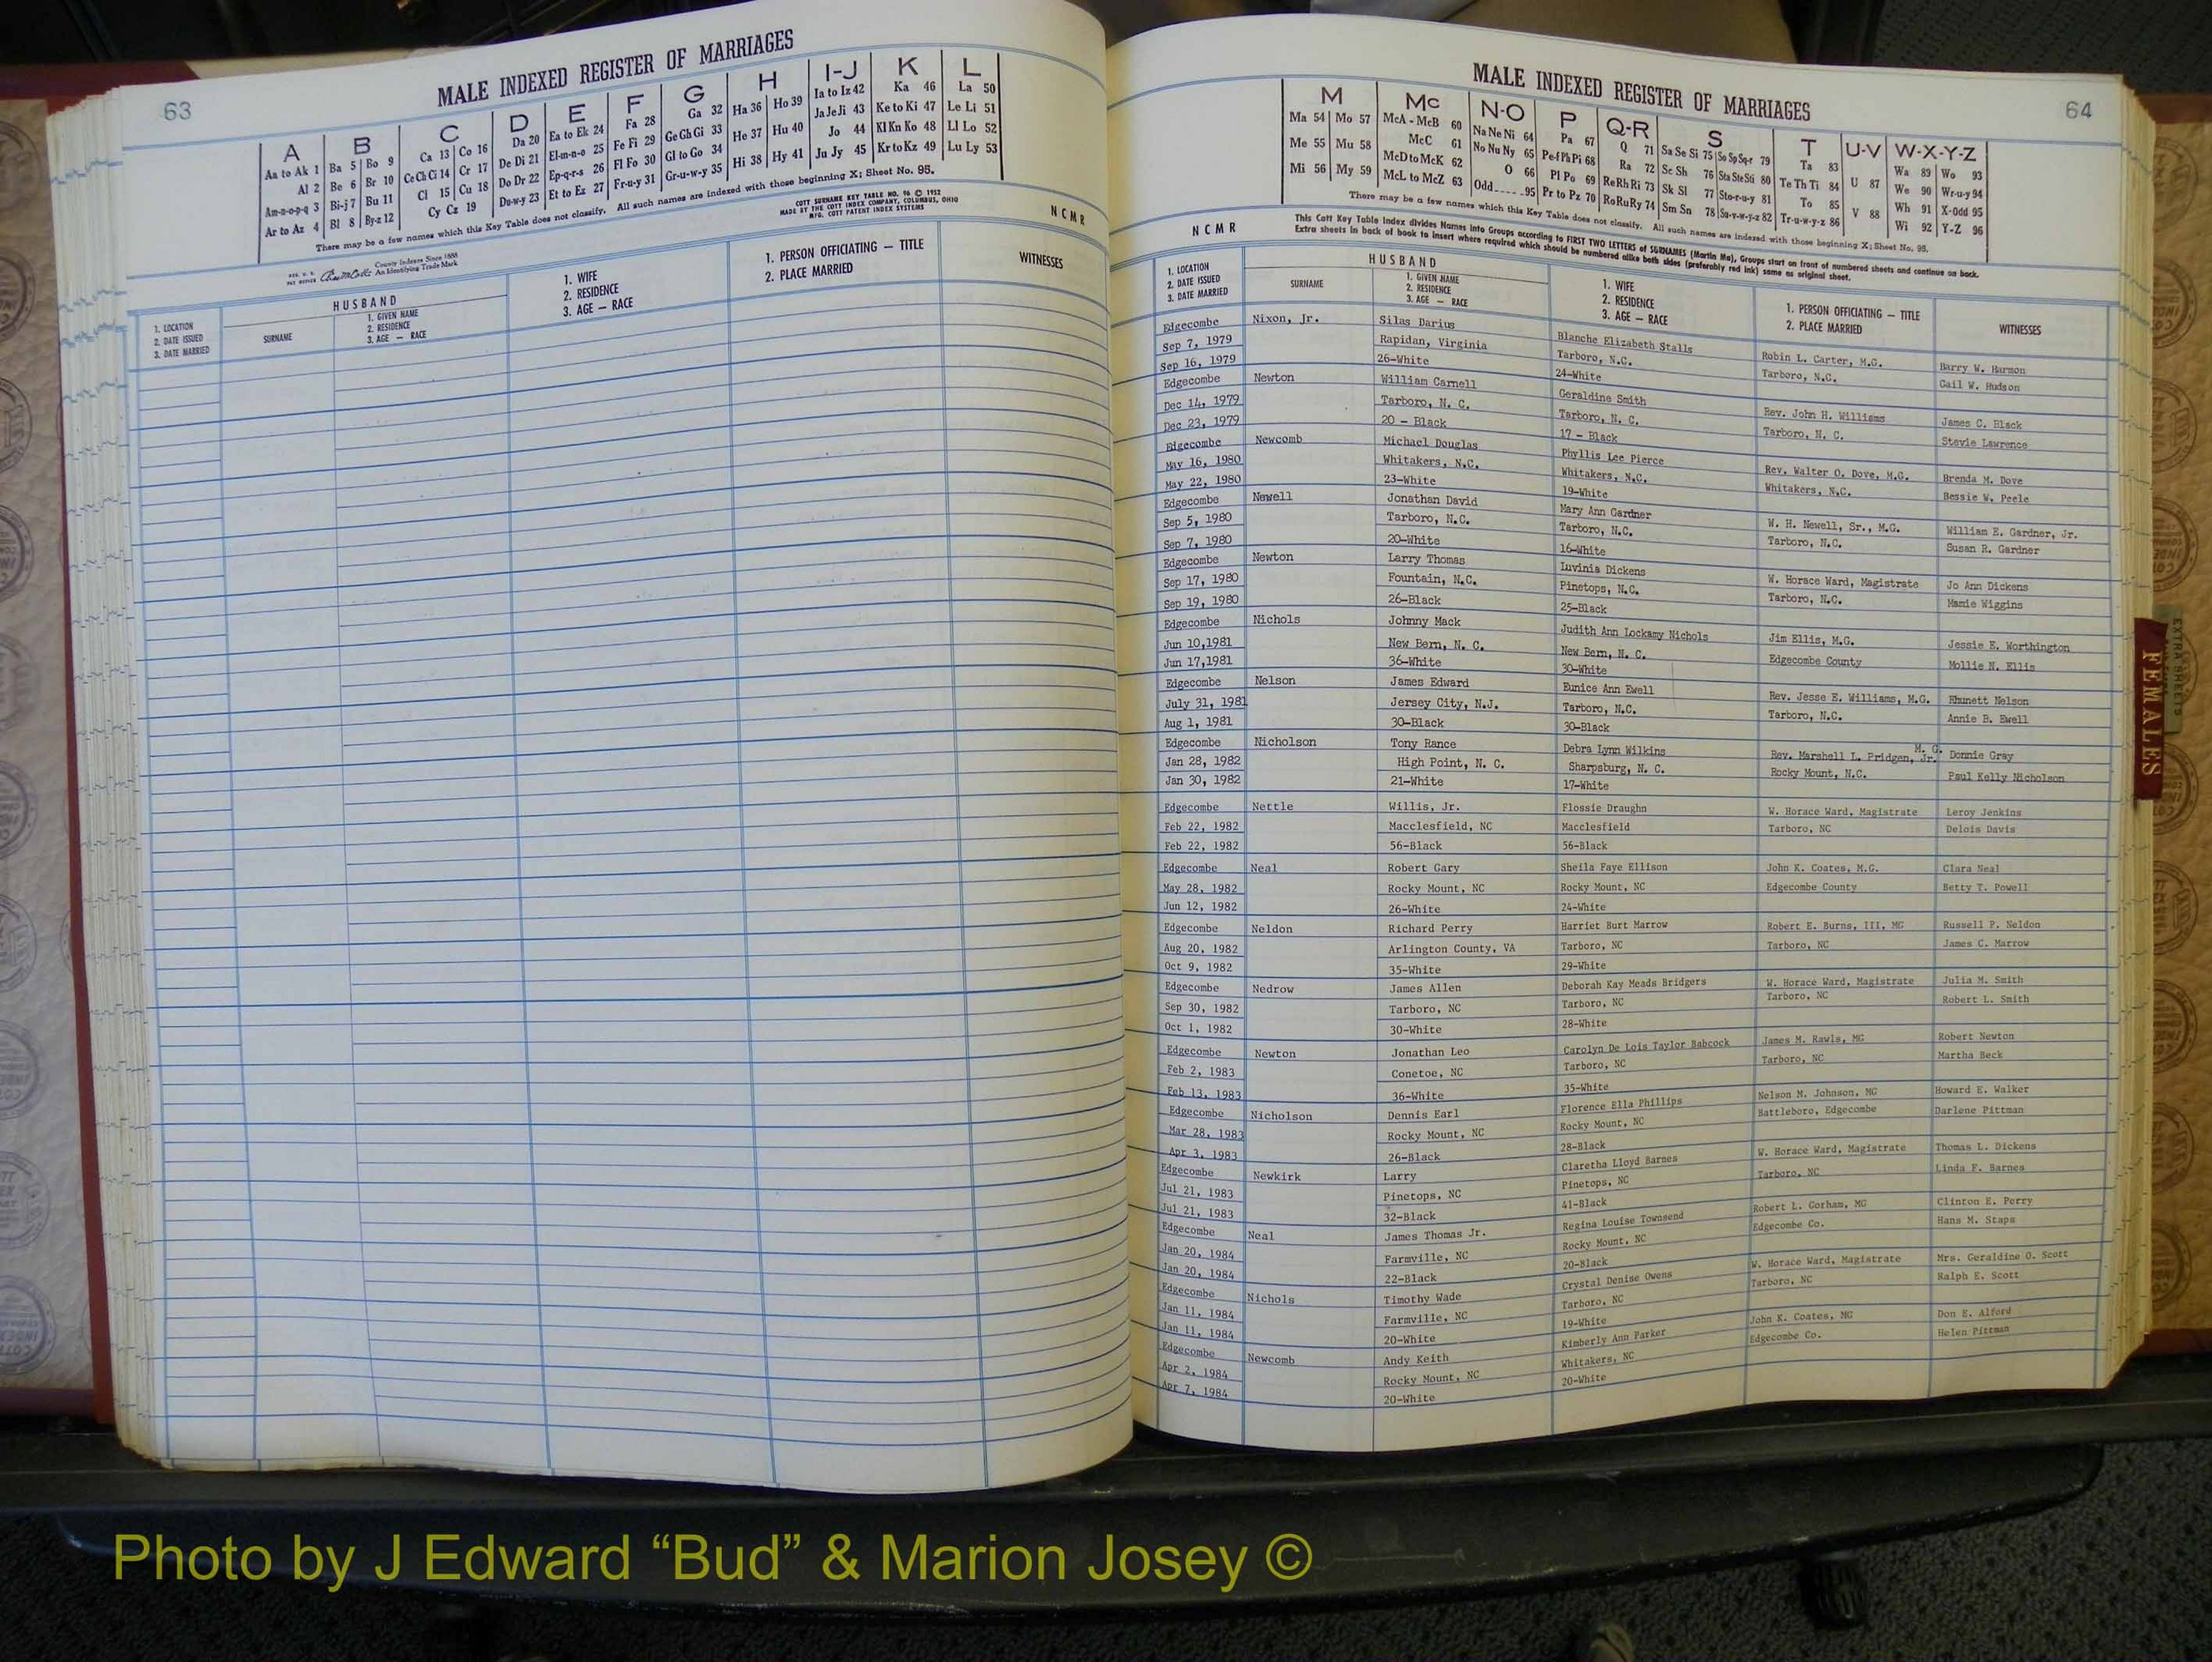 63
MALE INDEXED REGISTER OF MARRIAGES
A B C D E F G H I-J K L
Aa to Ak 1 Ba 5 Bo 9 Ca 13 Co 16 Da 20 Ea to Ek 24 Fa 28 Ga 32 Ha 36 Ho 39 Ia to Iz 42 Ka 46 La 50
Al 2 Be 6 Br 10 Ce Ch Ci 14 Cr 17 De Di 21 El-m-n-o 25 Fe Fi 29 Ge Gh Gi 33 He 37 Hu 40 Ja Je Ji 43 Ke to Ki 47 Le Li 51
Am-n-o-p-q 3 Bi-j 7 Bu 11 Cl 15 Cu 18 Do Dr 22 Ep-q-r-s 26 Fl Fo 30 Gl to Go 34 Hi 38 Hy 41 Jo 44 Kl Kn Ko 48 Ll Lo 52
Ar to Az 4 Bl 8 By-z 12 Cy Cz 19 Du-w-y 23 Et to Ez 27 Fr-u-y 31 Gr-u-w-y 35 Ju Jy 45 Kr to Kz 49 Lu Ly 53
There may be a few names which this Key Table does not classify. All such names are indexed with those beginning X; Sheet No. 95.
COTT SURNAME KEY TABLE NO. 96 © 1952
MADE BY THE COTT INDEX COMPANY, COLUMBUS, OHIO
MFG. COTT PATENT INDEX SYSTEMS
N C M R
County Indexes Since 1888
An Identifying Trade Mark
1. LOCATION
2. DATE ISSUED
3. DATE MARRIED
HUSBAND
SURNAME
1. GIVEN NAME
2. RESIDENCE
3. AGE — RACE
1. WIFE
2. RESIDENCE
3. AGE — RACE
1. PERSON OFFICIATING — TITLE
2. PLACE MARRIED
WITNESSES
MALE INDEXED REGISTER OF MARRIAGES
64
M Mc N-O P Q-R S T U-V W-X-Y-Z
Ma 54 Mo 57 McA - McB 60 Na Ne Ni 64 Pa 67 Q 71 Sa Se Si 75 So Sp Sq-r 79 Ta 83 U 87 Wa 89 Wo 93
Me 55 Mu 58 McC 61 No Nu Ny 65 Pe-f Ph Pi 68 Ra 72 Sc Sh 76 Sta Ste Sti 80 Te Th Ti 84 V 88 We 90 Wr-u-y 94
Mi 56 My 59 McD to McK 62 O 66 Pl Po 69 Re Rh Ri 73 Sk Sl 77 Sto-r-u-y 81 To 85 Wh 91 X-Odd 95
McL to McZ 63 Odd 95 Pr to Pz 70 Ro Ru Ry 74 Sm Sn 78 Su-v-w-y-z 82 Tr-u-w-y-z 86 Wi 92 Y-Z 96
There may be a few names which this Key Table does not classify. All such names are indexed with those beginning X; Sheet No. 95.
N C M R
This Cott Key Table Index divides Names into Groups according to FIRST TWO LETTERS of SURNAMES (Martin Ma), Groups start on front of numbered sheets and continue on back.
Extra sheets in back of book to insert where required which should be numbered alike both sides (preferably red ink) same as original sheet.
1. LOCATION
2. DATE ISSUED
3. DATE MARRIED
HUSBAND
SURNAME
1. GIVEN NAME
2. RESIDENCE
3. AGE — RACE
1. WIFE
2. RESIDENCE
3. AGE — RACE
1. PERSON OFFICIATING — TITLE
2. PLACE MARRIED
WITNESSES
Edgecombe Nixon, Jr. Silas Darius Blanche Elizabeth Stalls Robin L. Carter, M.G. Barry W. Harmon
Sep 7, 1979 Rapidan, Virginia Tarboro, N.C. Tarboro, N.C. Gail W. Hudson
Sep 16, 1979 26-White 24-White
Edgecombe Newton William Carnell Geraldine Smith Rev. John H. Williams James C. Black
Dec 14, 1979 Tarboro, N. C. Tarboro, N. C. Tarboro, N. C. Stevie Lawrence
Dec 23, 1979 20 - Black 17 - Black
Edgecombe Newcomb Michael Douglas Phyllis Lee Pierce Rev. Walter O. Dove, M.G. Brenda M. Dove
May 16, 1980 Whitakers, N.C. Whitakers, N.C. Whitakers, N.C. Bessie W. Peele
May 22, 1980 23-White 19-White
Edgecombe Newell Jonathan David Mary Ann Gardner W. H. Newell, Sr., M.G. William E. Gardner, Jr.
Sep 5, 1980 Tarboro, N.C. Tarboro, N.C. Tarboro, N.C. Susan R. Gardner
Sep 7, 1980 20-White 16-White
Edgecombe Newton Larry Thomas Luvinia Dickens W. Horace Ward, Magistrate Jo Ann Dickens
Sep 17, 1980 Fountain, N.C. Pinetops, N.C. Tarboro, N.C. Mamie Wiggins
Sep 19, 1980 26-Black 25-Black
Edgecombe Nichols Johnny Mack Judith Ann Lockamy Nichols Jim Ellis, M.G. Jessie E. Worthington
Jun 10,1981 New Bern, N. C. New Bern, N. C. Edgecombe County Mollie N. Ellis
Jun 17,1981 36-White 30-White
Edgecombe Nelson James Edward Eunice Ann Ewell Rev. Jesse E. Williams, M.G. Rhunett Nelson
July 31, 1981 Jersey City, N.J. Tarboro, N.C. Tarboro, N.C. Annie B. Ewell
Aug 1, 1981 30-Black 30-Black
Edgecombe Nicholson Tony Rance Debra Lynn Wilkins Rev. Marshell L. Pridgen, Jr. M. G. Donnie Gray
Jan 28, 1982 High Point, N. C. Sharpsburg, N. C. Rocky Mount, N.C. Paul Kelly Nicholson
Jan 30, 1982 21-White 17-White
Edgecombe Nettle Willis, Jr. Flossie Draughn W. Horace Ward, Magistrate Leroy Jenkins
Feb 22, 1982 Macclesfield, NC Macclesfield Tarboro, NC Delois Davis
Feb 22, 1982 56-Black 56-Black
Edgecombe Neal Robert Gary Sheila Faye Ellison John K. Coates, M.G. Clara Neal
May 28, 1982 Rocky Mount, NC Rocky Mount, NC Edgecombe County Betty T. Powell
Jun 12, 1982 26-White 24-White
Edgecombe Neldon Richard Perry Harriet Burt Marrow Robert E. Burns, III, MG Russell P. Neldon
Aug 20, 1982 Arlington County, VA Tarboro, NC Tarboro, NC James C. Marrow
Oct 9, 1982 35-White 29-White
Edgecombe Nedrow James Allen Deborah Kay Meads Bridgers W. Horace Ward, Magistrate Julia M. Smith
Sep 30, 1982 Tarboro, NC Tarboro, NC Tarboro, NC Robert L. Smith
Oct 1, 1982 30-White 28-White
Edgecombe Newton Jonathan Leo Carolyn De Lois Taylor Babcock James M. Rawls, MG Robert Newton
Feb 2, 1983 Conetoe, NC Tarboro, NC Tarboro, NC Martha Beck
Feb 13, 1983 36-White 35-White
Edgecombe Nicholson Dennis Earl Florence Ella Phillips Nelson M. Johnson, MG Howard E. Walker
Mar 28, 1983 Rocky Mount, NC Rocky Mount, NC Battleboro, Edgecombe Darlene Pittman
Apr 3, 1983 26-Black 28-Black
Edgecombe Newkirk Larry Claretha Lloyd Barnes W. Horace Ward, Magistrate Thomas L. Dickens
Jul 21, 1983 Pinetops, NC Pinetops, NC Tarboro, NC Linda F. Barnes
Jul 21, 1983 32-Black 41-Black
Edgecombe Neal James Thomas Jr. Regina Louise Townsend Robert L. Gorham, MG Clinton E. Perry
Jan 20, 1984 Farmville, NC Rocky Mount, NC Edgecombe Co. Hans M. Staps
Jan 20, 1984 22-Black 20-Black
Edgecombe Nichols Timothy Wade Crystal Denise Owens W. Horace Ward, Magistrate Mrs. Geraldine O. Scott
Jan 11, 1984 Farmville, NC Tarboro, NC Tarboro, NC Ralph E. Scott
Jan 11, 1984 20-White 19-White
Edgecombe Newcomb Andy Keith Kimberly Ann Parker John K. Coates, MG Don E. Alford
Apr 2, 1984 Rocky Mount, NC Whitakers, NC Edgecombe Co. Helen Pittman
Apr 7, 1984 20-White 20-White
EXTRA SHEETS
FEMALES
Photo by J Edward “Bud” & Marion Josey ©